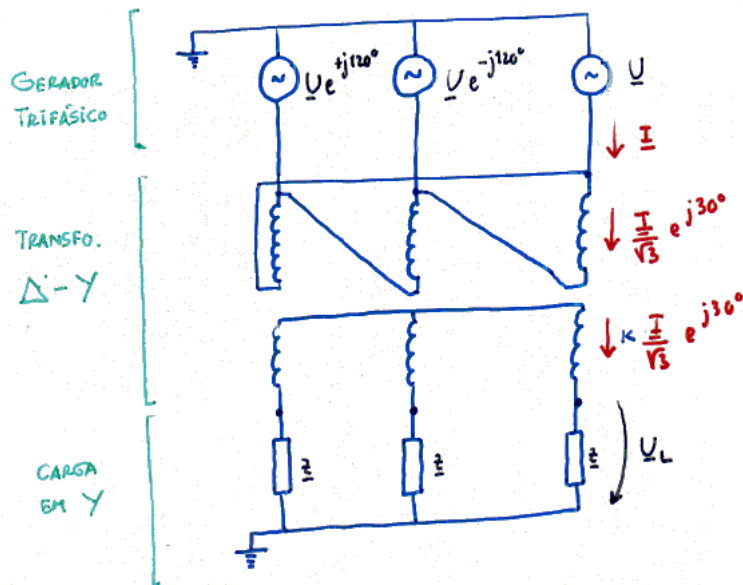 GERADOR
TRIFÁSICO
~ U̲e^{+j120°}
~ U̲e^{-j120°}
~ U̲
↓ I̲
TRANSFO.
Δ-Y
↓ I̲/√3 e^{j30°}
↓ K I̲/√3 e^{j30°}
CARGA
EM Y
z̲
z̲
z̲
U̲_L